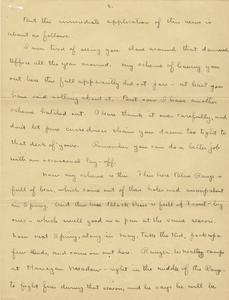 2.
But the immediate application of this news is
about as follows.
I am tired of seeing you slave around that damned
office all the year around. My scheme of luring you
out here this fall apparently did not jar - at least you
have said nothing about it. But now I have another
scheme hatched out. I have thunk it over carefully, and
don't let your cussedness chain you down too tight to
that desk of yours. Remember you can do a better job
with an occasional lay-off.
Now my scheme is this. This here Blue Range is
full of bear, which come out of their holes and
in Spring. And this here Black River is full of trout - big
ones - which smell good in a pan at the same season.
Now next Spring, along in May, take the Kid, pack up a
few duds, and come on out here. Ranger camps
at Meadow - right in the middle of the Range -
to fight fires during that season, and he says he will be